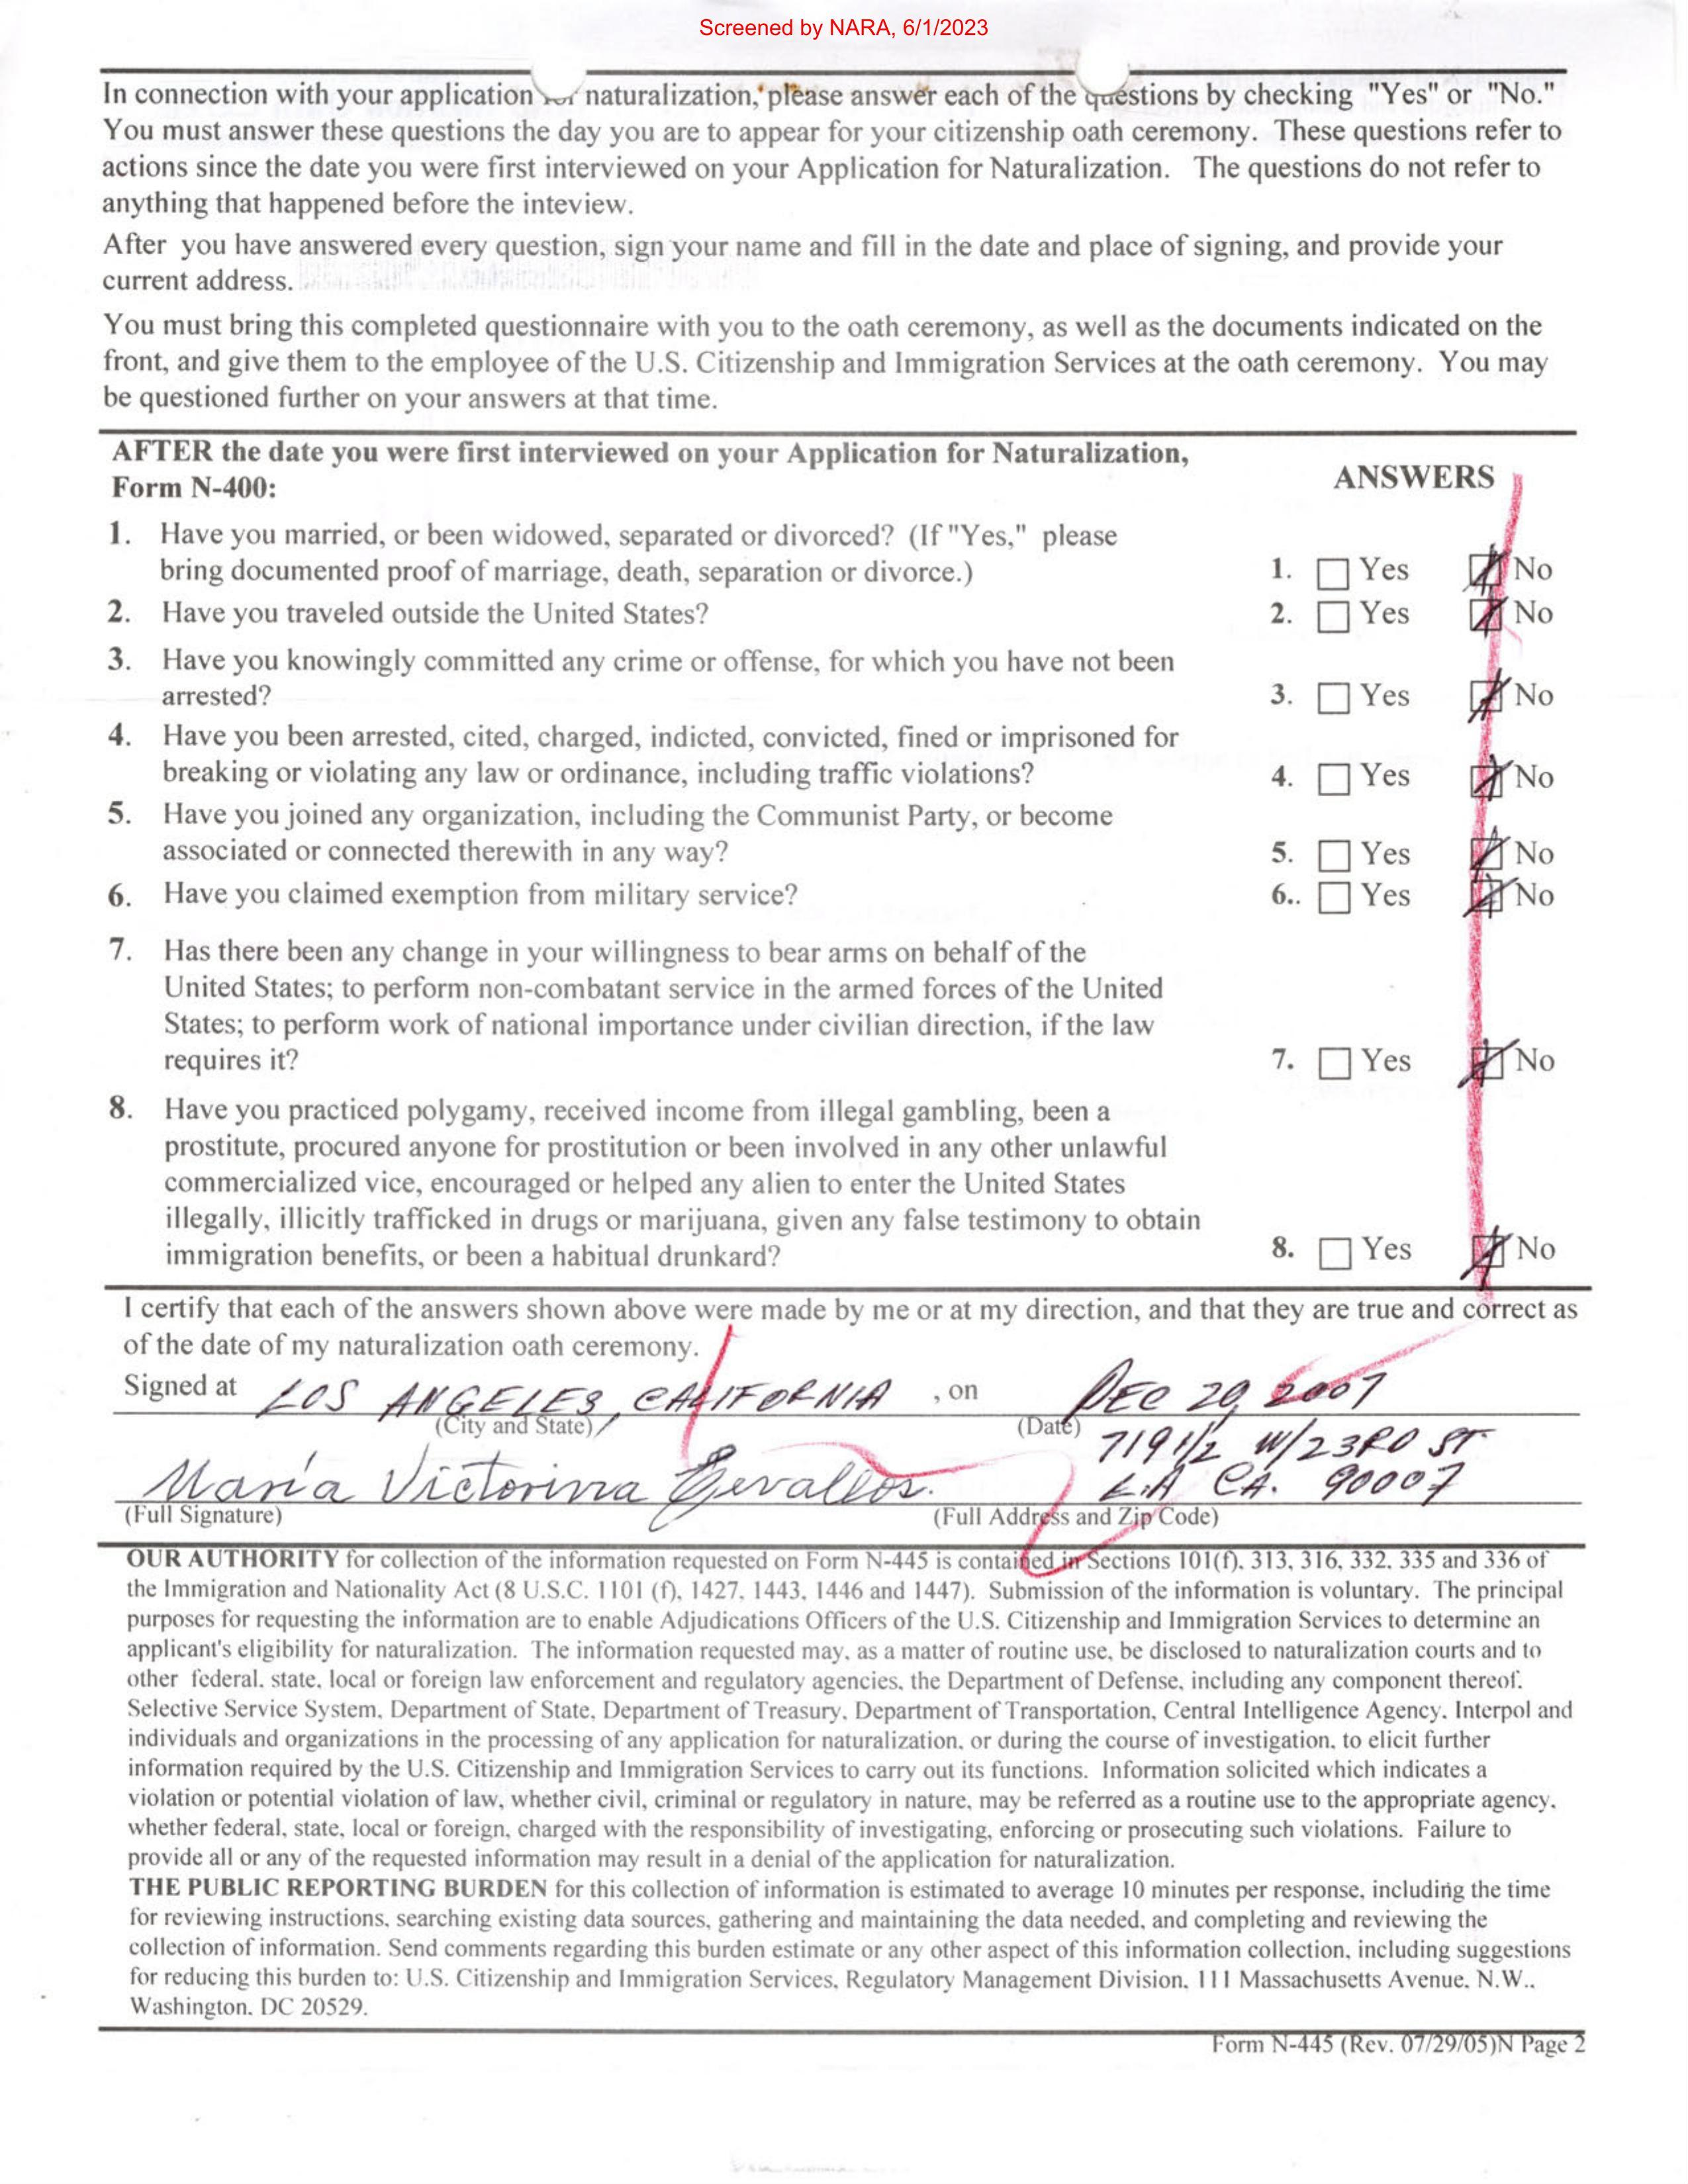 Screened by NARA, 6/1/2023
In connection with your application for naturalization, please answer each of the questions by checking "Yes" or "No."
You must answer these questions the day you are to appear for your citizenship oath ceremony. These questions refer to
actions since the date you were first interviewed on your Application for Naturalization. The questions do not refer to
anything that happened before the inteview.
After you have answered every question, sign your name and fill in the date and place of signing, and provide your
current address.
You must bring this completed questionnaire with you to the oath ceremony, as well as the documents indicated on the
front, and give them to the employee of the U.S. Citizenship and Immigration Services at the oath ceremony. You may
be questioned further on your answers at that time.
AFTER the date you were first interviewed on your Application for Naturalization,
Form N-400:
ANSWERS
1. Have you married, or been widowed, separated or divorced? (If "Yes," please
bring documented proof of marriage, death, separation or divorce.)
1. Yes No
2. Have you traveled outside the United States?
2. Yes No
3. Have you knowingly committed any crime or offense, for which you have not been
arrested?
3. Yes No
4. Have you been arrested, cited, charged, indicted, convicted, fined or imprisoned for
breaking or violating any law or ordinance, including traffic violations?
4. Yes No
5. Have you joined any organization, including the Communist Party, or become
associated or connected therewith in any way?
5. Yes No
6. Have you claimed exemption from military service?
6.. Yes No
7. Has there been any change in your willingness to bear arms on behalf of the
United States; to perform non-combatant service in the armed forces of the United
States; to perform work of national importance under civilian direction, if the law
requires it?
7. Yes No
8. Have you practiced polygamy, received income from illegal gambling, been a
prostitute, procured anyone for prostitution or been involved in any other unlawful
commercialized vice, encouraged or helped any alien to enter the United States
illegally, illicitly trafficked in drugs or marijuana, given any false testimony to obtain
immigration benefits, or been a habitual drunkard?
8. Yes No
I certify that each of the answers shown above were made by me or at my direction, and that they are true and correct as
of the date of my naturalization oath ceremony.
Signed at LOS ANGELES, CALIFORNIA , on DEC 20, 2007
(City and State) (Date)
719 1/2 W/23RD ST.
María Victorina Zevallos. L.A CA. 90007
(Full Signature) (Full Address and Zip Code)
OUR AUTHORITY for collection of the information requested on Form N-445 is contained in Sections 101(f), 313, 316, 332, 335 and 336 of
the Immigration and Nationality Act (8 U.S.C. 1101 (f), 1427, 1443, 1446 and 1447). Submission of the information is voluntary. The principal
purposes for requesting the information are to enable Adjudications Officers of the U.S. Citizenship and Immigration Services to determine an
applicant's eligibility for naturalization. The information requested may, as a matter of routine use, be disclosed to naturalization courts and to
other federal, state, local or foreign law enforcement and regulatory agencies, the Department of Defense, including any component thereof.
Selective Service System, Department of State, Department of Treasury, Department of Transportation, Central Intelligence Agency, Interpol and
individuals and organizations in the processing of any application for naturalization, or during the course of investigation, to elicit further
information required by the U.S. Citizenship and Immigration Services to carry out its functions. Information solicited which indicates a
violation or potential violation of law, whether civil, criminal or regulatory in nature, may be referred as a routine use to the appropriate agency,
whether federal, state, local or foreign, charged with the responsibility of investigating, enforcing or prosecuting such violations. Failure to
provide all or any of the requested information may result in a denial of the application for naturalization.
THE PUBLIC REPORTING BURDEN for this collection of information is estimated to average 10 minutes per response, including the time
for reviewing instructions, searching existing data sources, gathering and maintaining the data needed, and completing and reviewing the
collection of information. Send comments regarding this burden estimate or any other aspect of this information collection, including suggestions
for reducing this burden to: U.S. Citizenship and Immigration Services, Regulatory Management Division, 111 Massachusetts Avenue, N.W.,
Washington, DC 20529.
Form N-445 (Rev. 07/29/05)N Page 2